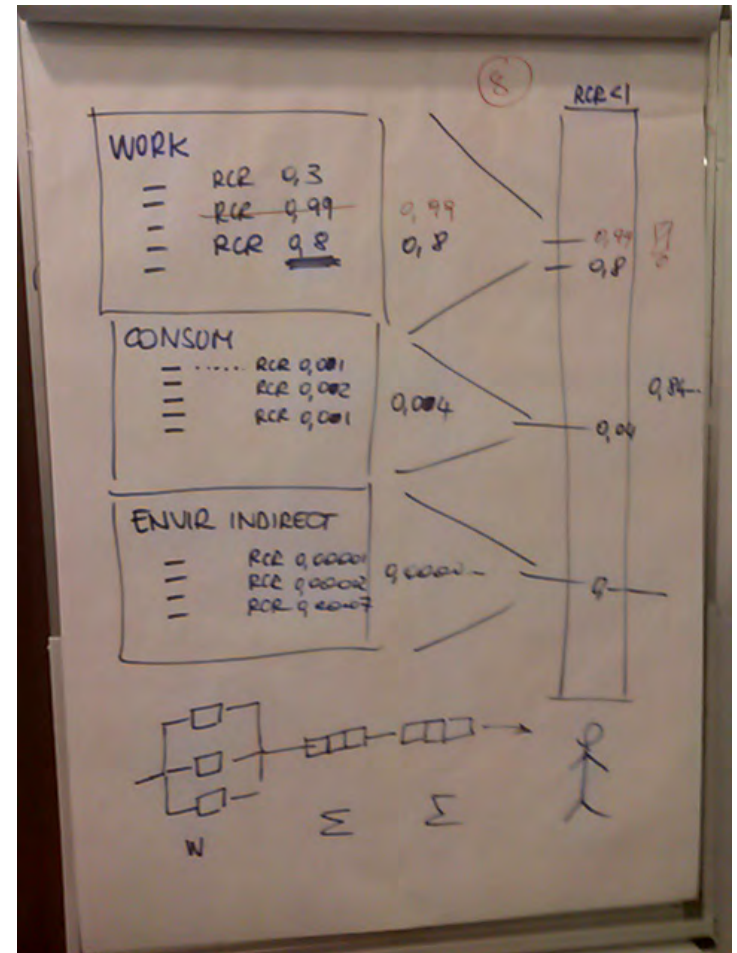 8
RCR<1
WORK
RCR 0,3
RCR 0,99
0,99
0,99
RCR 0,8
0,8
0,8
CONSUM
RCR 0,001
RCR 0,002
RCR 0,001
0,004
0,04
0,84...
ENVIR INDIRECT
RCR 0,00001
RCR 0,00002
0,
W
Σ
Σ